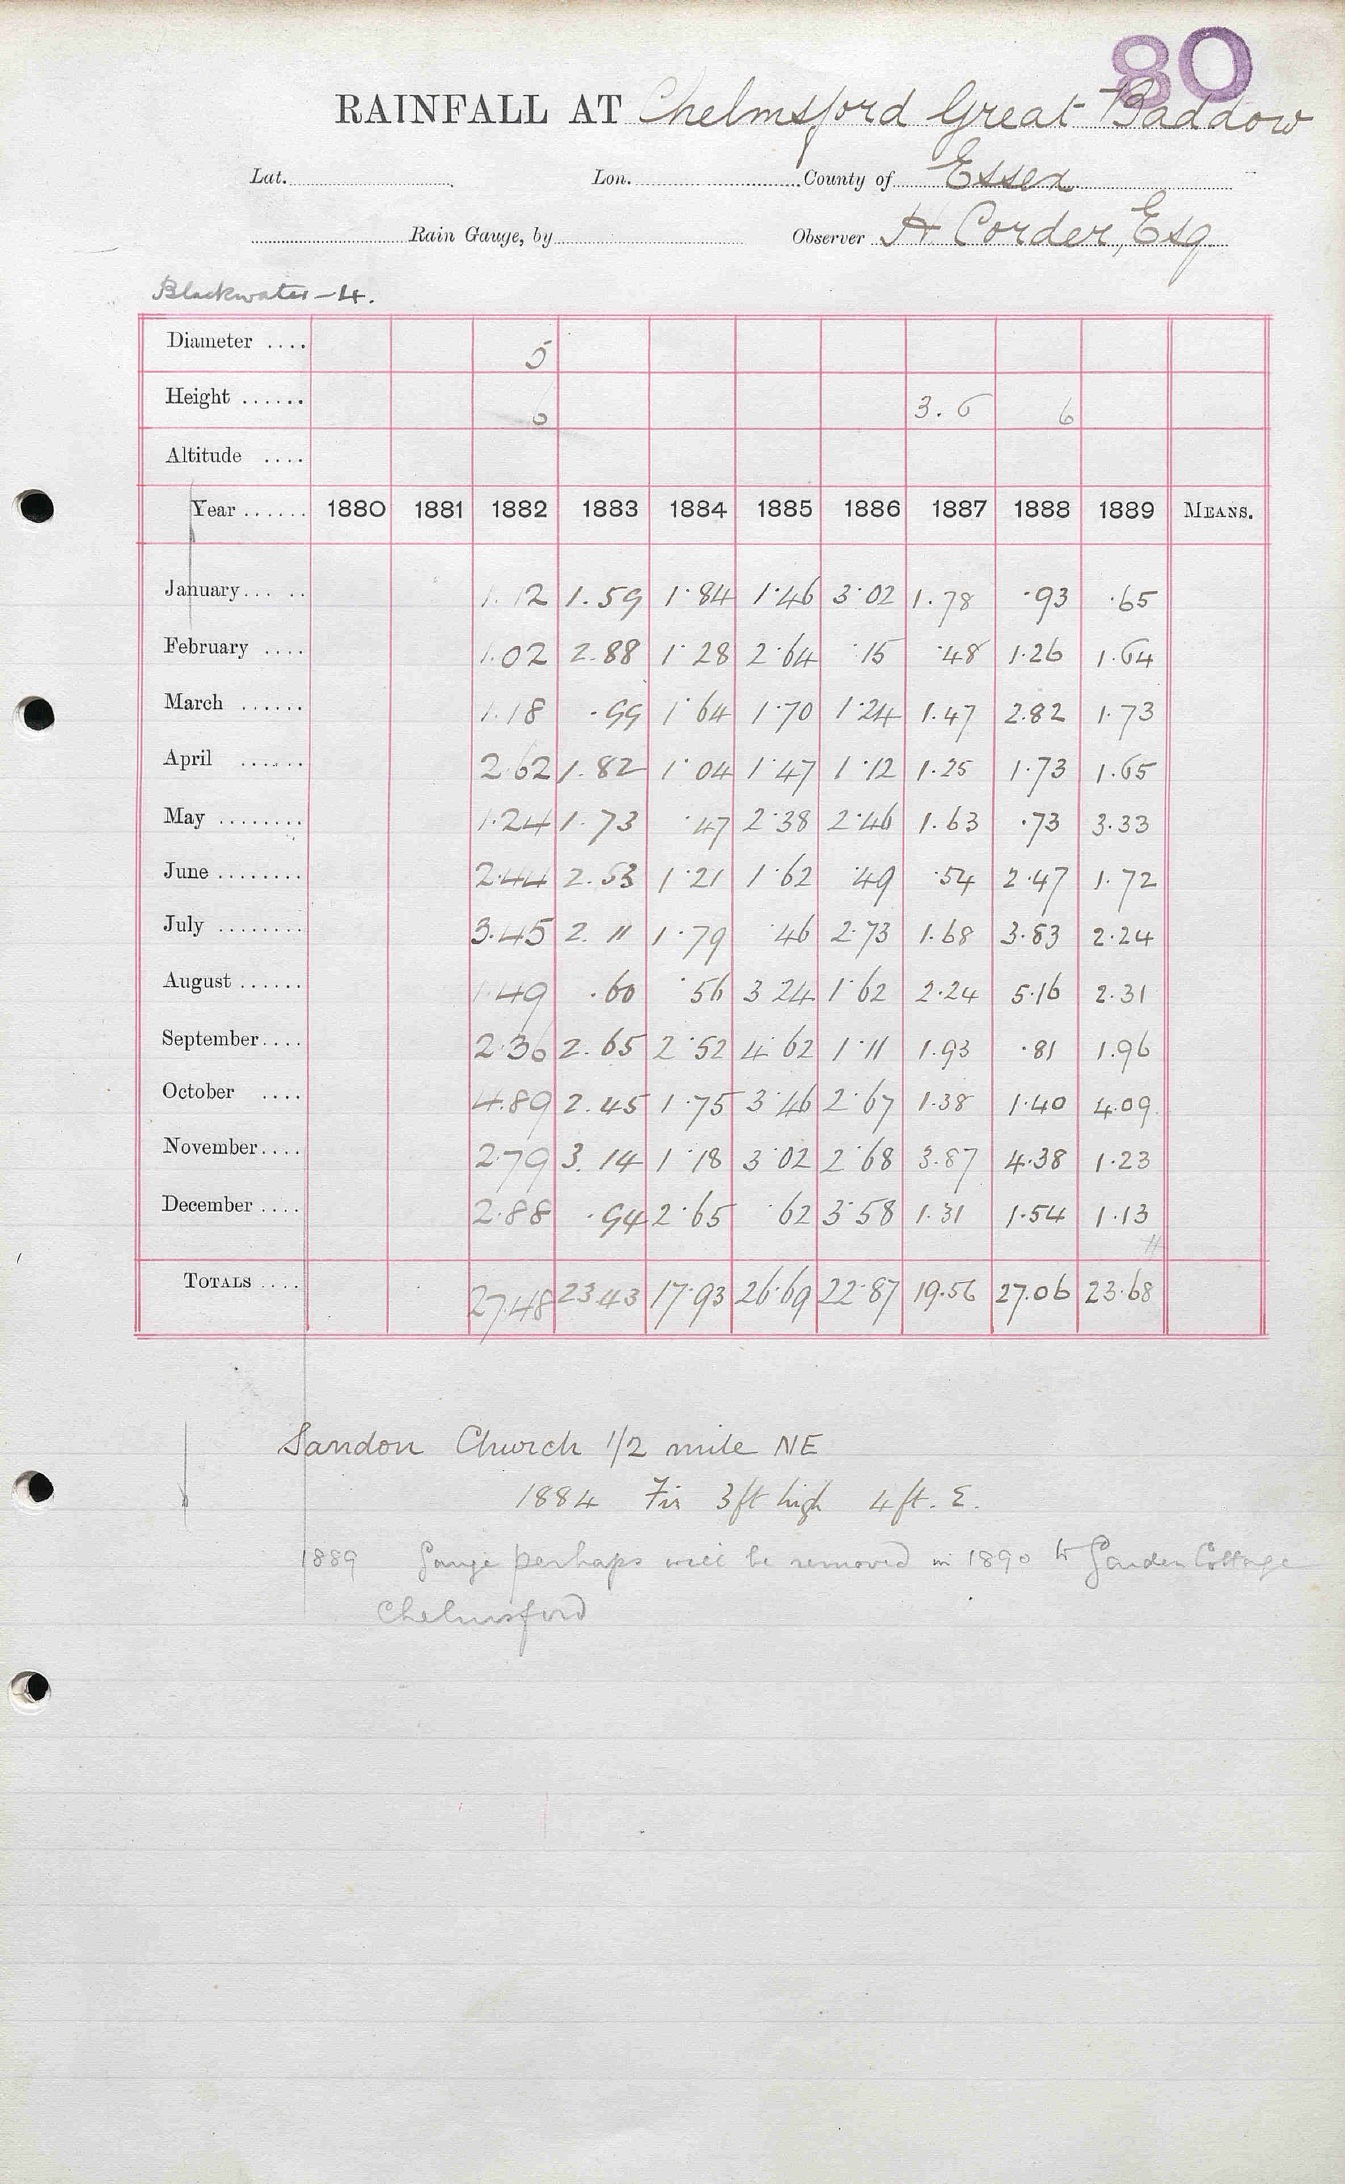 80
RAINFALL AT Chelmsford Great Baddow
Lat. Lon. County of Essex
Rain Gauge, by Observer H Corder, Esq
Blackwater - 4.
Diameter .... 5
Height ...... 6 3.6 6
Altitude ....
Year ...... 1880 1881 1882 1883 1884 1885 1886 1887 1888 1889 MEANS.
January... .. 1.12 1.59 1.84 1.46 3.02 1.78 .93 .65
February .... 1.02 2.88 1.28 2.64 .15 .48 1.26 1.64
March ...... 1.18 .99 1.64 1.70 1.24 1.47 2.82 1.73
April ...... 2.62 1.82 1.04 1.47 1.12 1.25 1.73 1.65
May ........ 1.24 1.73 .47 2.38 2.46 1.63 .73 3.33
June ........ 2.44 2.53 1.21 1.62 .49 .54 2.47 1.72
July ........ 3.45 2.11 1.79 .46 2.73 1.68 3.83 2.24
August ...... 1.49 .60 .56 3 24 1.62 2.24 5.16 2.31
September.... 2.36 2.65 2.52 4.62 1.11 1.93 .81 1.96
October .... 4.89 2.45 1.75 3.46 2.67 1.38 1.40 4.09
November.... 2.79 3.14 1.18 3.02 2.68 3.87 4.38 1.23
December .... 2.88 .94 2.65 .62 3.58 1.31 1.54 1.13
TOTALS .... 27.48 23.43 17.93 26.69 22.87 19.56 27.06 23.68
Sandon Church 1/2 mile NE
1884 Fir 3ft high 4ft. E.
1889 Gauge perhaps will be removed in 1890 to Garden Cottage
Chelmsford